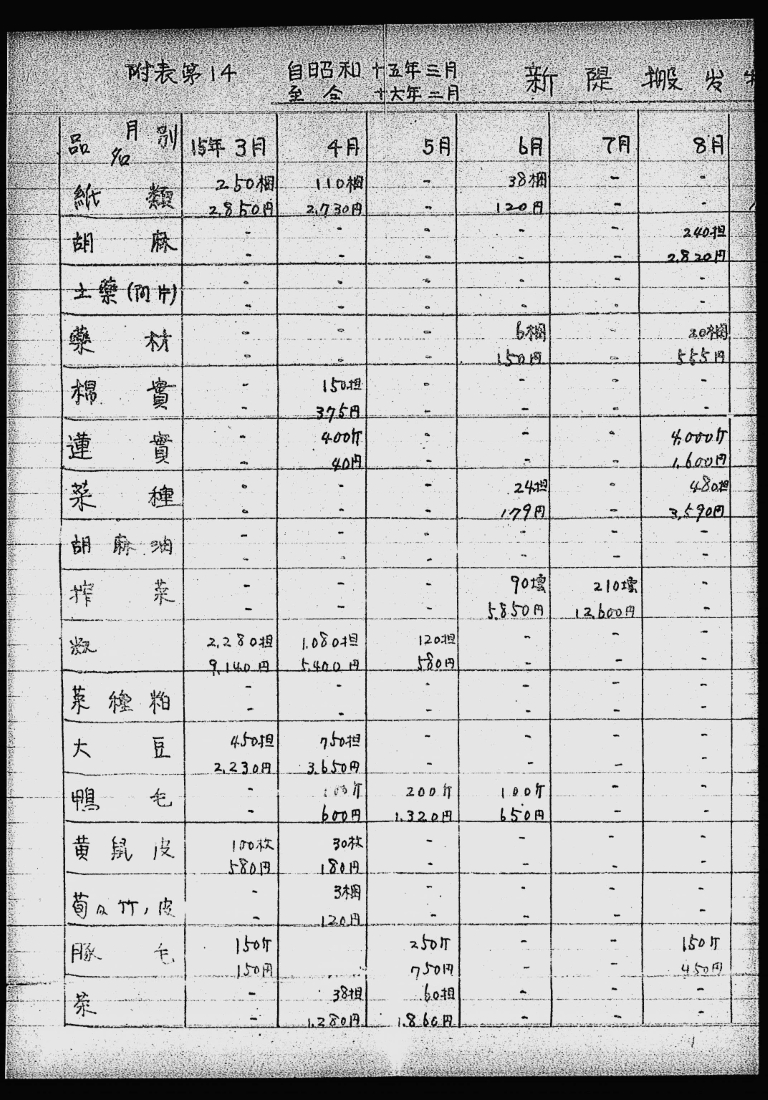 附表第14 自昭和十五年三月 新隄搬发
至仝十六年二月
品名 月別 15年3月 4月 5月 6月 7月 8月
紙類 250梱 110梱 - 38梱 - -
2,850円 2,730円 - 120円 - -
胡麻 - - - - - 240担
- - - - - 2,820円
土藥(阿片) - - - - - -
- - - - - -
藥材 - - - 6梱 - 20梱
- - - 150円 - 555円
棉實 - 150担 - - - -
- 375円 - - - -
蓮實 - 400斤 - - - 4,000斤
- 40円 - - - 1,600円
菜種 - - - 24担 - 480担
- - - 179円 - 3,590円
胡麻油 - - - - - -
- - - - - -
搾菜 - - - 90壜 210壜 -
- - - 5,850円 12,600円 -
2,280担 1,080担 120担 - - -
9,140円 5,400円 580円 - - -
菜種粕 - - - - - -
- - - - - -
大豆 450担 750担 - - - -
2,230円 3,650円 - - - -
鴨毛 - 100斤 200斤 100斤 - -
- 600円 1,320円 650円 - -
黄鼠皮 100枚 30枚 - - - -
580円 180円 - - - -
荀及竹ノ皮 - 3梱 - - - -
- 120円 - - - -
豚毛 150斤 - 250斤 - - 150斤
150円 - 750円 - - 450円
茶 - 38担 60担 - - -
- 1,280円 1,860円 - - -